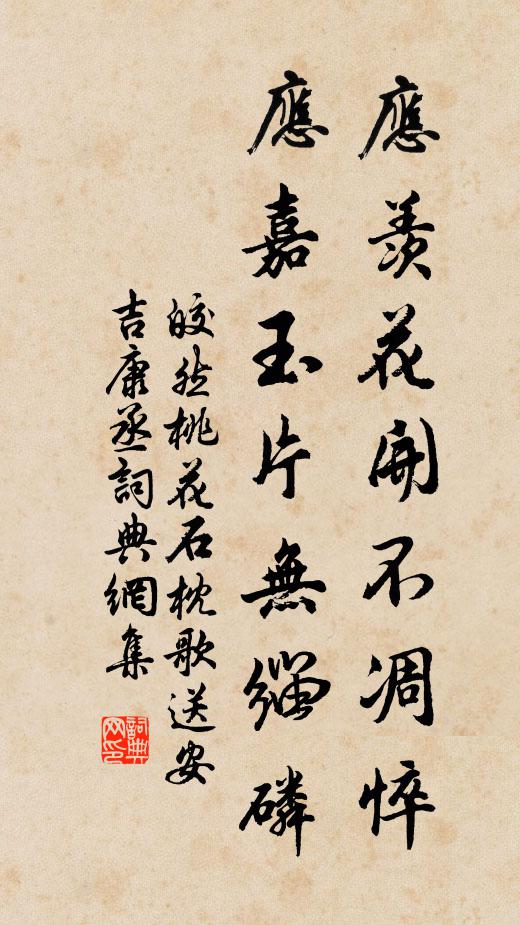 應羨花開不凋悴
應嘉玉片無緇磷
皎然桃花石枕歌送安
吉康丞詞典網集
詞典
网印